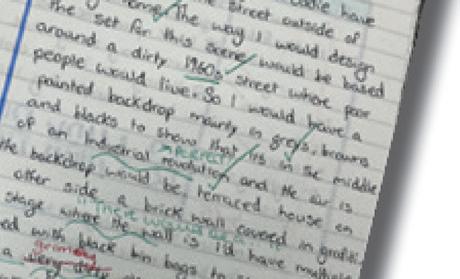 have
scene. The way I would design
street outside of
the set for this scene would be based
around a dirty 1960s street where poor
people would live. So I would have a
painted backdrop mainly in greys, browns
and blacks to show that its in the middle
of an industrial revolution and the air is
the backdrop would be terraced house on
other side a brick wall covered in graffiti
"There would be a
stage where the wall is I'd have
with black bin bags to
grimey
a very